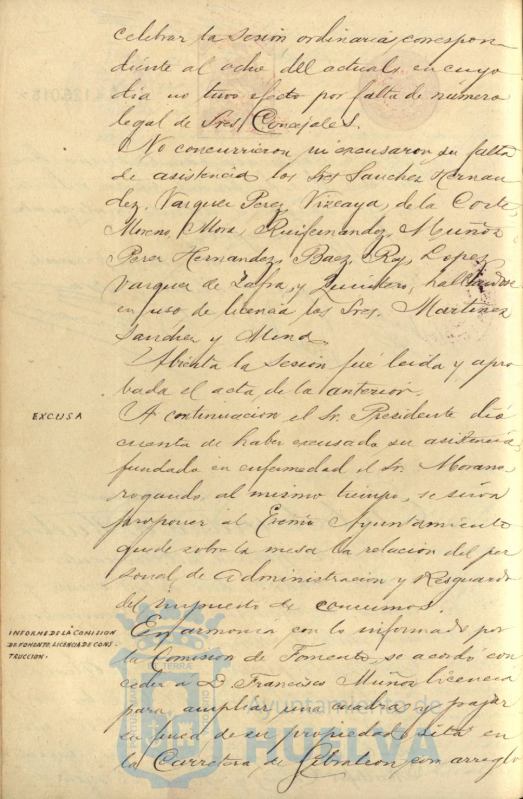 celebrar la sesión ordinaria correspon
diente al ocho del actual, en cuyo
día no tuvo efecto por falta de numero
legal de Sres. Concejales.
No concurrieron ni excusaron su falta
de asistencia los Sres Sanchez Hernan
dez, Vazquez Perez, Vizcaya, de la Corte,
Moreno, Mora, Ruifernandez, Muñoz
Perez Hernandez, Baez, Rey, Lopez
Vazquez de Zafra, y Quintero, hallandose
en uso de licencia los Sres. Martinez
Sanchez y
Abierta la sesión fué leida y apro
bada el acta de la anterior.
EXCUSA
A continuacion el Sr. Presidente dió
cuenta de haber excusado su asistencia,
fundado en enfermedad el Sr. Morano,
rogando al mismo tiempo, se sirva
proponer al Excmo Ayuntamiento
quede sobre la mesa la relacion del per
sonal de Administracion y Resguardo
del impuesto de consumos.
INFORME DE LA COMISION
DE FOMENTO, LICENCIA DE CONS-
TRUCCION.
En armonia con lo informado por
la Comision de Fomento, se acordó con
ceder á D. Francisco Muñoz licencia
para ampliar una cuadra y pajar
en finca de su propiedad sita en
la Carretera de Gibraleon con arreglo
Ayuntamiento de
HUELVA